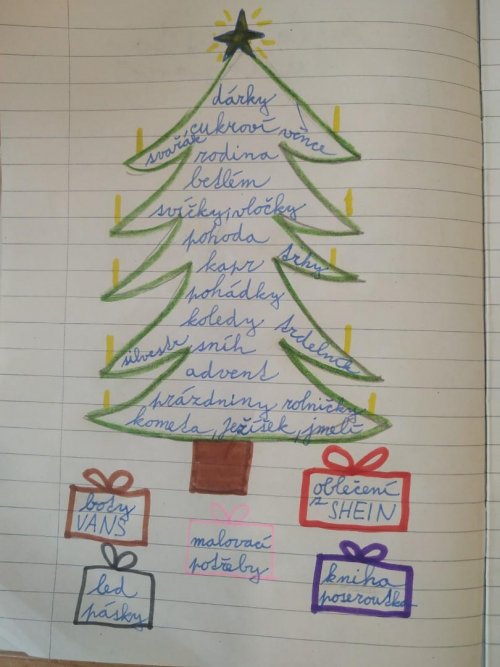 dárky
cukroví věnce
svařák rodina
betlém
svíčky, vločky
pohoda
kapr trhy
pohádky
koledy trdelník
silvestr sníh
advent
prázdniny rolničky
kometa, ježíšek, jmelí
boty
VANS
malovací
potřeby
oblečení
z SHEIN
led
pásky
kniha
poseroutka